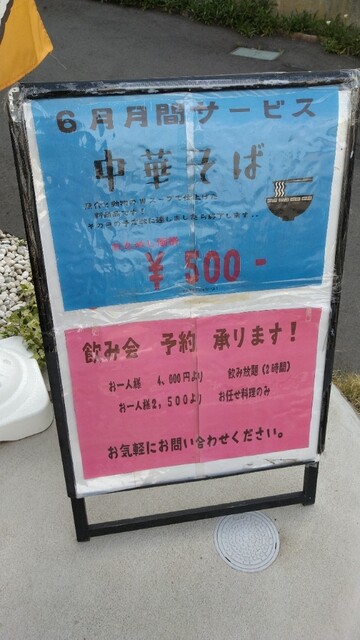 6月月間サービス
中華そば
新商品です！
￥500-
飲み会 予約 承ります！
お一人様 4,000円より 飲み放題(2時間)
お一人様2,500より お任せ料理のみ
お気軽にお問い合わせください。